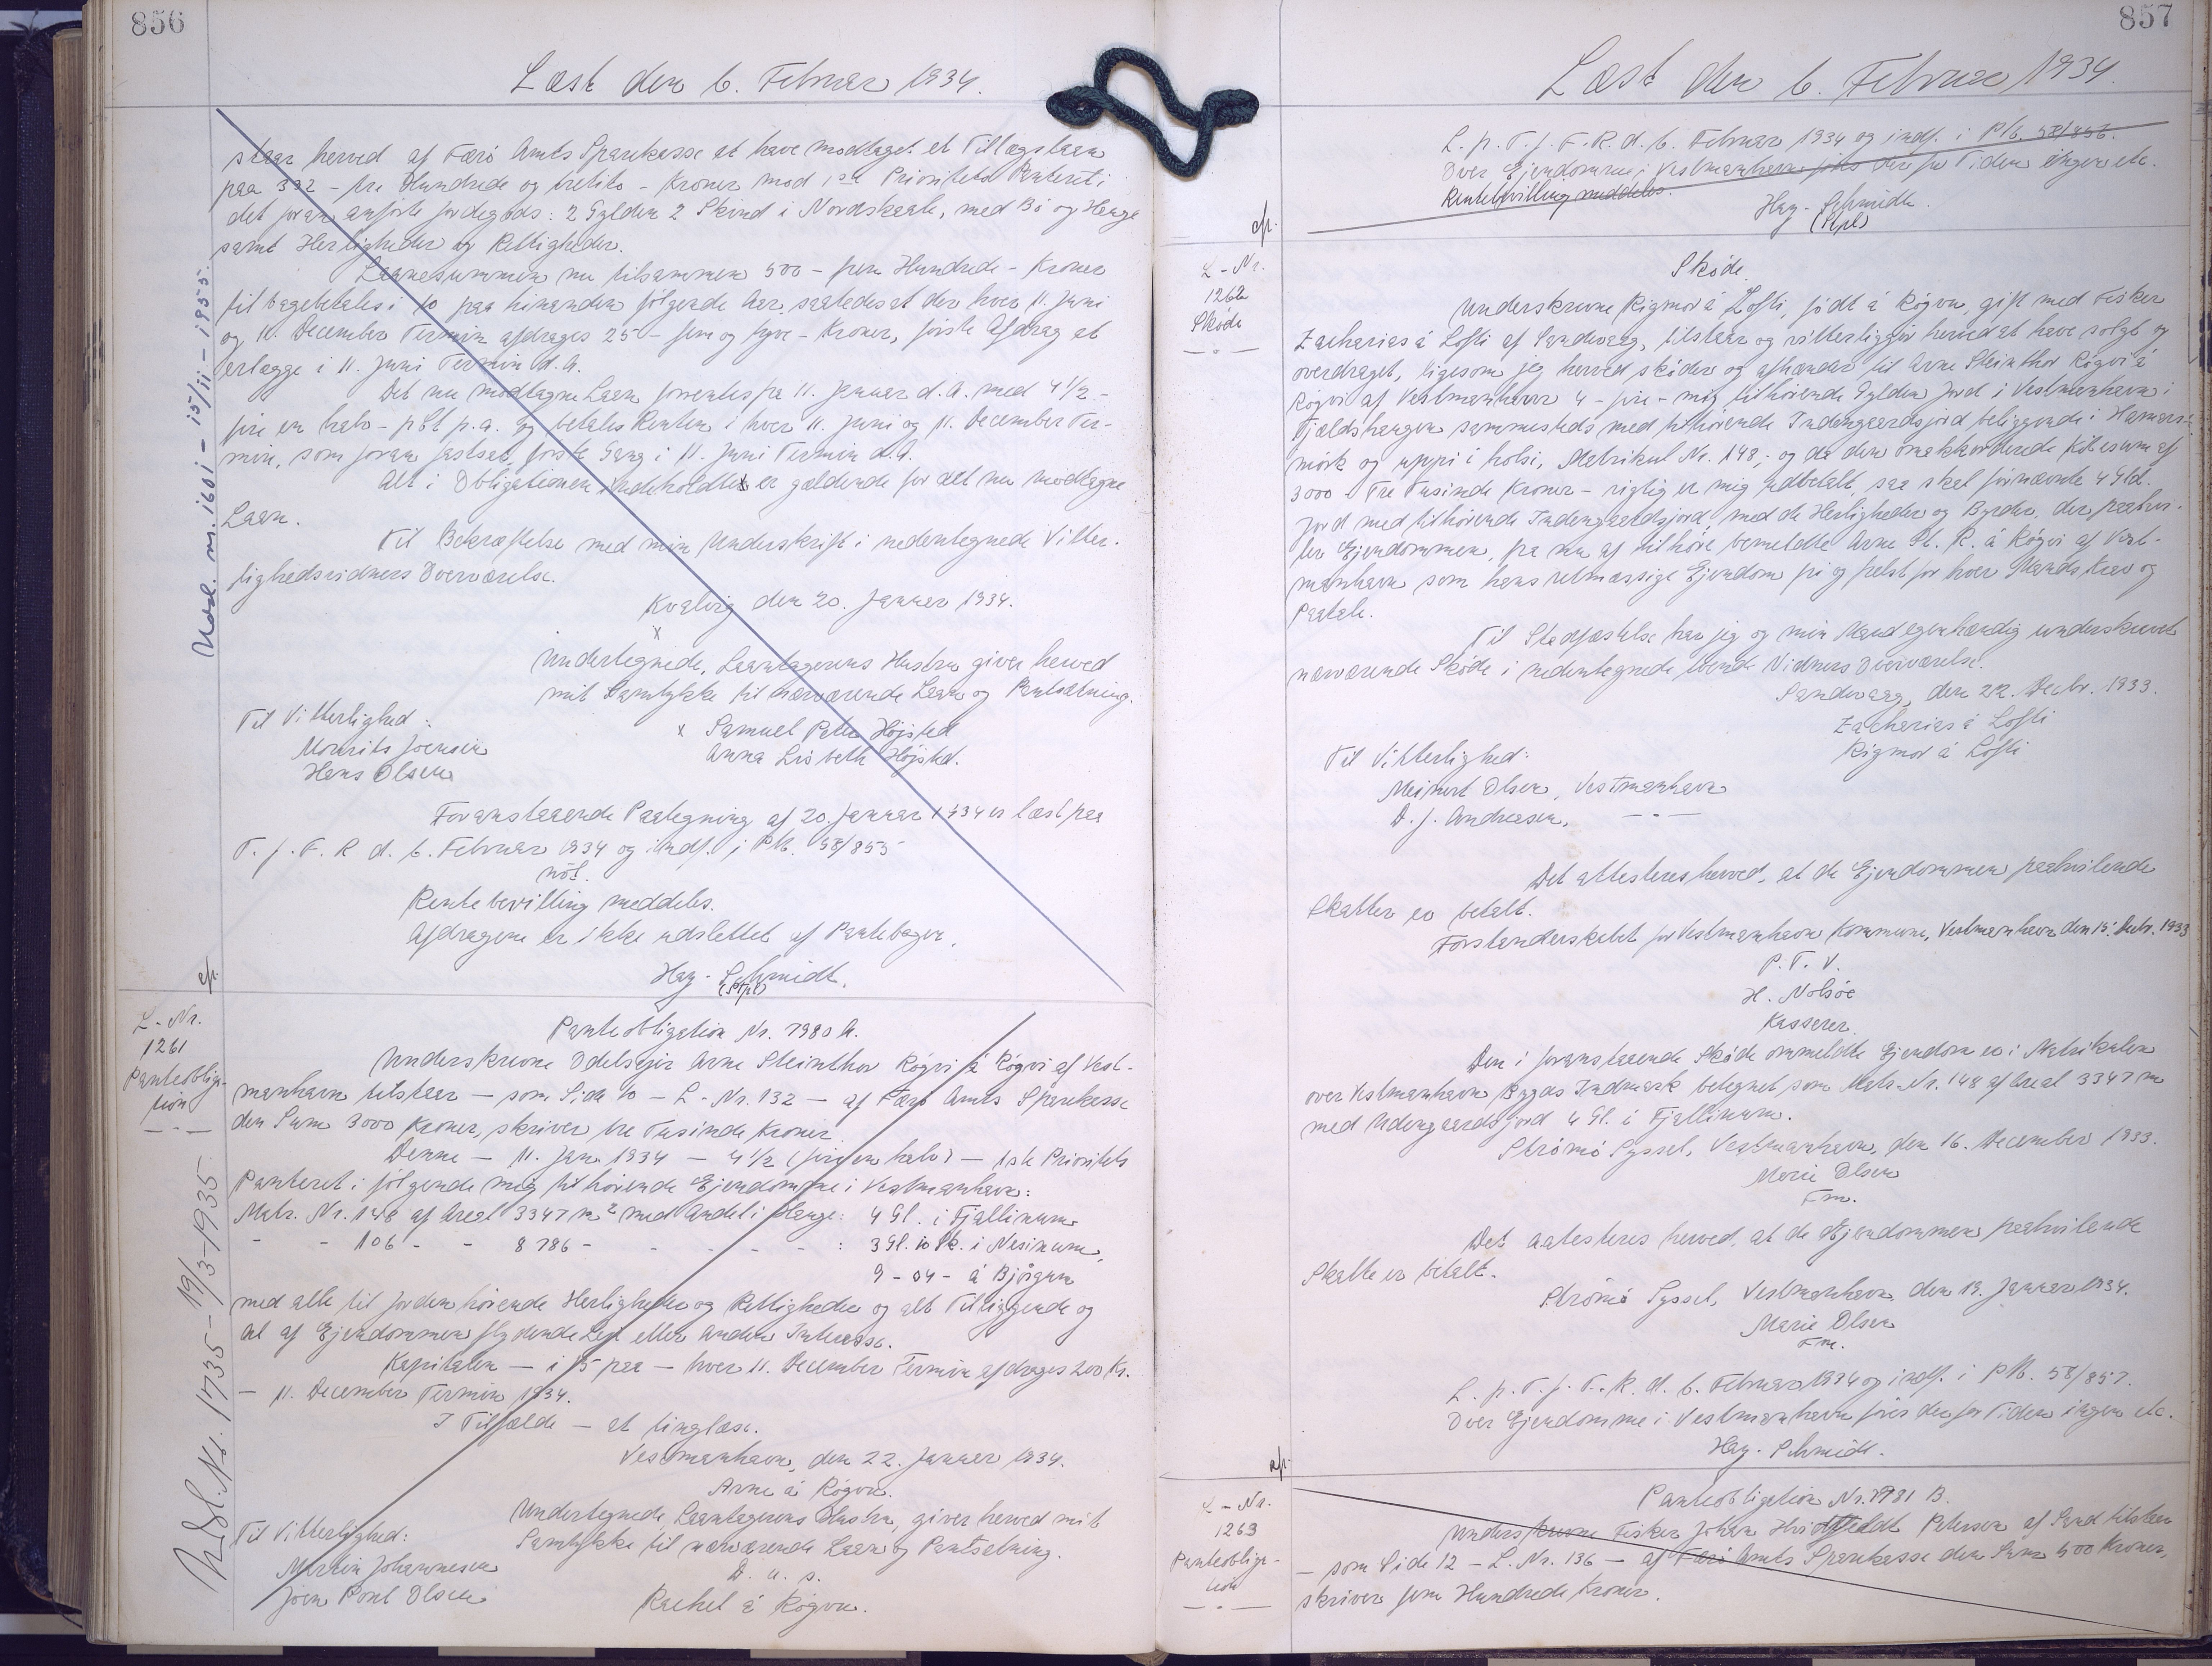 856
Læst den 6. Februar 1934.
staar herved af Færö Amts Sparekasse at have modtaget et Tillægslaan
paa 332 - tre Hundrede og tretito - Kroner mod 1ste Prioritets Panteret i
det foran anförte Jordegods: 2 Gylden 2 Skind i Nordskaale, med Bö og Hauge
samt Herligheder og Rettigheder.
Laanesummen nu tilsammen 500 - fem Hundrede - Kroner
tilbagebetales i 10 paa hinanden fölgende Aar, saaledes at der hver 11. Juni
og 11. December Termin afdrages 25 - fem og tyve - Kroner, förste Afdrag at
erlægge i 11. Juni Termin d. A.
Det nu modtagne Laan forrentes fra 11. Januar d. A. med 4 1/2 -
fire en halv - pCt p.a. og betales Renten i hver 11. Juni og 11. December Ter-
min, som foran fastsat, förste Gang i 11. Juni Termin d. A.
Alt i Obligationen indeholdte er gældende for det nu modtagne
Laan.
Til Bekræftelse med min Underskrift i nedentegnede Vitter-
lighedsvidners Overværelse.
Kvalvig den 20. Januar 1934.
x
Undertegnede, Laantagerens Hustru giver herved
mit Samtykke til nærværende Laan og Pantsætning.
Til Vitterlighed:
x Samuel Peter Höjsted
Mourits Joensen
Anna Lisbeth Höjsted.
Hans Olsen
Foranstaaende Paategning af 20. Januar 1934 er læst paa
T. f. F. R d. 6. Februar 1934 og indf. i Pb. 58/855
nöt.
Rentebevilling meddeles.
Afdragene er ikke udslettet af Pantebogen.
Hay-Schmidt.
(Stpl)
Udsl. nr. 1601 - 15/11 - 1955.
cfr.
L-Nr.
1261
Panteobliga-
tion
Panteobligation Nr. 7980 A.
Underskrevne Odelsejer Arne Steinthor Rógvi á Rógvi af Vest-
manhavn tilstaar - som Side 10 - L-Nr. 132 - af Færö Amts Sparekasse
den Sum 3000 Kroner, skriver tre Tusinde Kroner.
Denne - 11. Jan. 1934 - 4 1/2 (fire en halv) - 1ste Prioritets
Panteret i fölgende mig tilhörende Ejendomme i Vestmanhavn:
Matr. Nr. 148 af Areal 3347 m2 med Andel i Hauge: 4 Gl. i Fjallinum
- - 106 - - 8786 - - - - - : 3 Gl. 10 Sk. i Nesinum,
9 - 04 - á Björgum
med alle til Jorden hörende Herligheder og Rettigheder og alt Tilliggende og
al af Ejendommen flydende Leje eller anden Interesse.
Kapitalen - i 15 paa - hver 11. December Termin afdrages 200 Kr.
- 11. December Termin 1934.
I Tilfælde - at tinglæse.
Vestmanhavn, den 22. Januar 1934.
Arne á Rógvu.
Undertegnede, Laantagerens Hustru, giver herved mit
Til Vitterlighed:
Samtykke til nærværende Laan og Pantsætning.
Martin Johannesen
D. u. s.
Joen Poul Olsen
Rachel á Rógvu.
Udsl. Nr. 1735 - 19/3-1935
857
Læst den 6. Februar 1934.
L. p. T. f. F. R. d. 6. Februar 1934 og indf. i Pb. 58/856.
Over Ejendomme i Vestmanhavn föres der for Tiden ingen etc.
Rentebevilling meddeles.
Hay-Schmidt.
(Stpl)
cfr.
L-Nr.
1262
Sköde
Sköde.
Underskrevne Rigmor á Lofti, födt á Rógvu, gift med Fisker
Zacharias á Lofti af Sandevaag, tilstaar og vitterliggör herved at have solgt og
overdraget, ligesom jeg herved sköder og afhænder til Arne Steinthor Rógvi á
Rógvi af Vestmanhavn 4 - fire - mig tilhörende Gylden Jord i Vestmanhavn i
Fjældshaugen sammesteds med tilhörende Indengaardsjord beliggende i Hamars-
mörk og uppi i holsi, Matrikul Nr. 148; og da den omakkorderede Köbesum af
3000 - Tre Tusinde Kroner - rigtig er mig udbetalt, saa skal fornævnte 4 Gld.
Jord med tilhörende Indengaardsjord, med de Herligheder og Byrder, der paahvi-
ler Ejendommen, fra nu af tilhöre bemeldte Arne St. R. á Rógvi af Vest-
manhavn som hans retmæssige Ejendom fri og frelst for hver Mands Krav og
Paatale.
Til Stadfæstelse har jeg og min Mand egenhændig underskrevet
nærværende Sköde i nedentegnede tvende Vidners Overværelse.
Sandevaag, den 22. Decbr. 1933.
Zacharias á Lofti
Til Vitterlighed:
Rigmor á Lofti
Meinert Olsen, Vestmanhavn
D. J. Andreasen, - " -
Det attesteres herved, at de Ejendommen paahvilende
Skatter er betalt.
Forstanderskabet for Vestmanhavn Kommune, Vestmanhavn den 15. Decbr. 1933
P. T. V.
H. Nolsöe
Kasserer.
Den i foranstaaende Sköde ommeldte Ejendom er i Matrikulen
over Vestmanhavn Bygds Indmark betegnet som Matr. Nr. 148 af Areal 3347 m
med Udengaardsjord 4 Gl. i Fjallinum.
Strömö Syssel, Vestmanhavn, den 16. December 1933.
Marie Olsen
Fm.
Det aatesteres herved, at de Ejendommen paahvilende
Skatte er betalt.
Strömö Syssel, Vestmanhavn, den 19. Januar 1934.
Marie Olsen
Fm.
L. p. T. f. F. R. d. 6. Februar 1934 og indf. i Pb. 58/857.
Over Ejendomme i Vestmanhavn föres der for Tiden ingen etc.
Hay-Schmidt.
cfr.
L-Nr.
1263
Panteobliga-
tion
Panteobligation Nr. 7981 B.
Underskrevne Fisker Johan Hvidtfeldt Petersen af Sand tilstaar
- som Side 12 - L. Nr. 136 - af Færö Amts Sparekasse den Sum 500 Kroner,
skriver fem Hundrede Kroner.